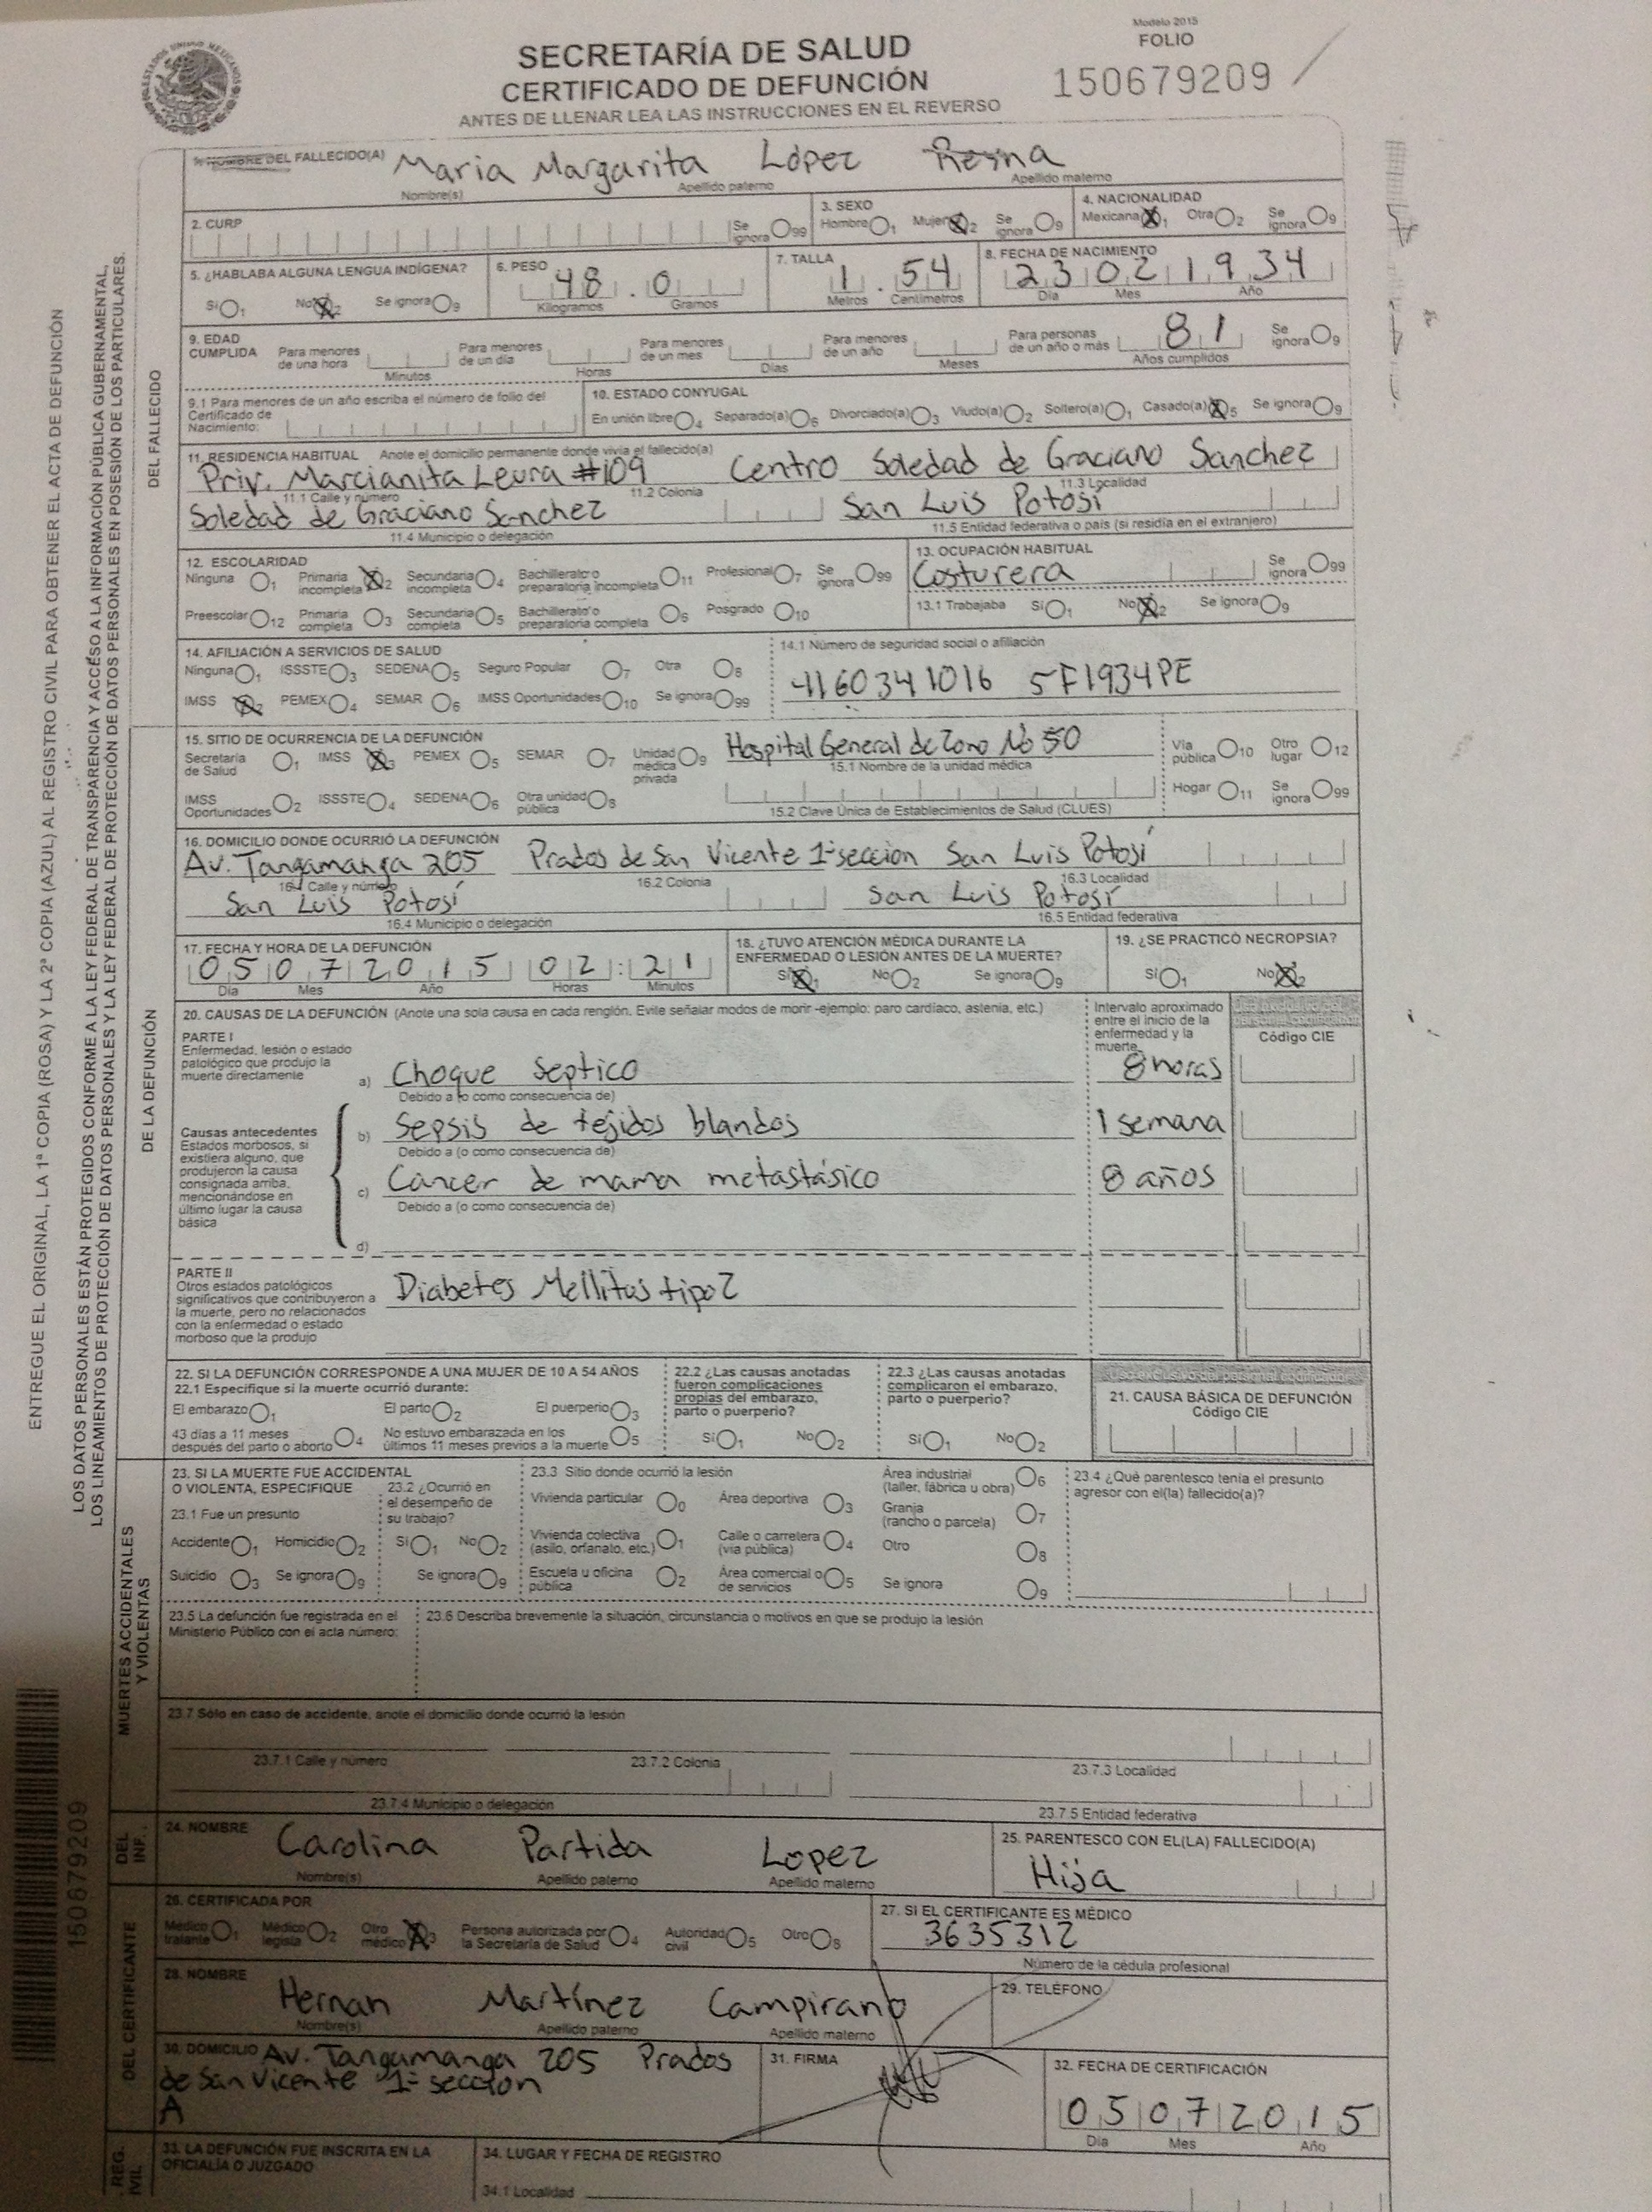 Modelo 2015
SECRETARÍA DE SALUD
FOLIO
CERTIFICADO DE DEFUNCIÓN
150679209
ANTES DE LLENAR LEA LAS INSTRUCCIONES EN EL REVERSO
ENTREGUE EL ORIGINAL, LA 1ª COPIA (ROSA) Y LA 2ª COPIA (AZUL) AL REGISTRO CIVIL PARA OBTENER EL ACTA DE DEFUNCIÓN
LOS DATOS PERSONALES ESTÁN PROTEGIDOS CONFORME A LA LEY FEDERAL DE TRANSPARENCIA Y ACCESO A LA INFORMACIÓN PÚBLICA GUBERNAMENTAL,
LOS LINEAMIENTOS DE PROTECCIÓN DE DATOS PERSONALES Y LA LEY FEDERAL DE PROTECCIÓN DE DATOS PERSONALES EN POSESIÓN DE LOS PARTICULARES.
DEL FALLECIDO
1. NOMBRE DEL FALLECIDO(A) Maria Margarita López
Nombre(s) Apellido paterno Apellido materno
2. CURP Se ignora 99
3. SEXO Hombre 1 Mujer 2 Se ignora 9
4. NACIONALIDAD Mexicana 1 Otra 2 Se ignora 9
5. ¿HABLABA ALGUNA LENGUA INDÍGENA?
Sí 1 No 2 Se ignora 9
6. PESO 48.0
Kilogramos Gramos
7. TALLA 1.54
Metros Centímetros
8. FECHA DE NACIMIENTO
23021934
Día Mes Año
9. EDAD CUMPLIDA Para menores de una hora Para menores de un día Para menores de un mes Para menores de un año Para personas de un año o más 81 Se ignora 9
Minutos Horas Días Meses Años cumplidos
9.1 Para menores de un año escriba el número de folio del Certificado de Nacimiento:
10. ESTADO CONYUGAL
En unión libre 4 Separado(a) 6 Divorciado(a) 3 Viudo(a) 2 Soltero(a) 1 Casado(a) 5 Se ignora 9
11. RESIDENCIA HABITUAL Anote el domicilio permanente donde vivía el fallecido(a)
Priv. Marcianita Leura #109 Centro Soledad de Graciano Sanchez
11.1 Calle y número 11.2 Colonia 11.3 Localidad
Soledad de Graciano Sánchez San Luis Potosí
11.4 Municipio o delegación 11.5 Entidad federativa o país (si residía en el extranjero)
12. ESCOLARIDAD
Ninguna 1 Primaria incompleta 2 Secundaria incompleta 4 Bachillerato o preparatoria incompleta 11 Profesional 7 Se ignora 99
Preescolar 12 Primaria completa 3 Secundaria completa 5 Bachillerato o preparatoria completa 6 Posgrado 10
13. OCUPACIÓN HABITUAL
Costurera Se ignora 99
13.1 Trabajaba Sí 1 No 2 Se ignora 9
14. AFILIACIÓN A SERVICIOS DE SALUD
Ninguna 1 ISSSTE 3 SEDENA 5 Seguro Popular 7 Otra 8
IMSS 2 PEMEX 4 SEMAR 6 IMSS Oportunidades 10 Se ignora 99
14.1 Número de seguridad social o afiliación
4160341016 5F1934PE
DE LA DEFUNCIÓN
15. SITIO DE OCURRENCIA DE LA DEFUNCIÓN
Secretaría de Salud 1 IMSS 3 PEMEX 5 SEMAR 7 Unidad médica privada 9 Hospital General de Zona No 50 Vía pública 10 Otro lugar 12
15.1 Nombre de la unidad médica
IMSS Oportunidades 2 ISSSTE 4 SEDENA 6 Otra unidad pública 8 Hogar 11 Se ignora 99
15.2 Clave Única de Establecimientos de Salud (CLUES)
16. DOMICILIO DONDE OCURRIÓ LA DEFUNCIÓN
Av. Tangamanga 205 Prados de San Vicente 1ª seccion San Luis Potosí
16.1 Calle y número 16.2 Colonia 16.3 Localidad
San Luis Potosí San Luis Potosí
16.4 Municipio o delegación 16.5 Entidad federativa
17. FECHA Y HORA DE LA DEFUNCIÓN
05072015 02:21
Día Mes Año Horas Minutos
18. ¿TUVO ATENCIÓN MÉDICA DURANTE LA ENFERMEDAD O LESIÓN ANTES DE LA MUERTE?
Sí 1 No 2 Se ignora 9
19. ¿SE PRACTICÓ NECROPSIA?
Sí 1 No 2
20. CAUSAS DE LA DEFUNCIÓN (Anote una sola causa en cada renglón. Evite señalar modos de morir -ejemplo: paro cardíaco, astenia, etc.)
Intervalo aproximado entre el inicio de la enfermedad y la muerte
Código CIE
PARTE I
Enfermedad, lesión o estado patológico que produjo la muerte directamente
a) Choque Septico 8 horas
Debido a (o como consecuencia de)
Causas antecedentes
Estados morbosos, si existiera alguno, que produjeron la causa consignada arriba, mencionándose en último lugar la causa básica
b) Sepsis de tejidos blandos 1 semana
Debido a (o como consecuencia de)
c) Cáncer de mama metastásico 8 años
Debido a (o como consecuencia de)
d)
PARTE II
Otros estados patológicos significativos que contribuyeron a la muerte, pero no relacionados con la enfermedad o estado morboso que la produjo
Diabetes Mellitus tipo 2
22. SI LA DEFUNCIÓN CORRESPONDE A UNA MUJER DE 10 A 54 AÑOS
22.1 Especifique si la muerte ocurrió durante:
El embarazo 1 El parto 2 El puerperio 3
43 días a 11 meses después del parto o aborto 4 No estuvo embarazada en los últimos 11 meses previos a la muerte 5
22.2 ¿Las causas anotadas fueron complicaciones propias del embarazo, parto o puerperio?
Sí 1 No 2
22.3 ¿Las causas anotadas complicaron el embarazo, parto o puerperio?
Sí 1 No 2
21. CAUSA BÁSICA DE DEFUNCIÓN
Código CIE
MUERTES ACCIDENTALES Y VIOLENTAS
23. SI LA MUERTE FUE ACCIDENTAL O VIOLENTA, ESPECIFIQUE
23.1 Fue un presunto
Accidente 1 Homicidio 2
Suicidio 3 Se ignora 9
23.2 ¿Ocurrió en el desempeño de su trabajo?
Sí 1 No 2
Se ignora 9
23.3 Sitio donde ocurrió la lesión
Vivienda particular 0 Área deportiva 3 Área industrial (taller, fábrica u obra) 6
Vivienda colectiva (asilo, orfanato, etc.) 1 Calle o carretera (vía pública) 4 Granja (rancho o parcela) 7
Otro 8
Escuela u oficina pública 2 Área comercial o de servicios 5 Se ignora 9
23.4 ¿Qué parentesco tenía el presunto agresor con el(la) fallecido(a)?
23.5 La defunción fue registrada en el Ministerio Público con el acta número:
23.6 Describa brevemente la situación, circunstancia o motivos en que se produjo la lesión
23.7 Sólo en caso de accidente, anote el domicilio donde ocurrió la lesión
23.7.1 Calle y número 23.7.2 Colonia 23.7.3 Localidad
23.7.4 Municipio o delegación 23.7.5 Entidad federativa
150679209
DEL INF.
24. NOMBRE Carolina Partida Lopez
Nombre(s) Apellido paterno Apellido materno
25. PARENTESCO CON EL(LA) FALLECIDO(A)
Hija
DEL CERTIFICANTE
26. CERTIFICADA POR
Médico tratante 1 Médico legista 2 Otro médico 3 Persona autorizada por la Secretaría de Salud 4 Autoridad civil 5 Otro 8
27. SI EL CERTIFICANTE ES MÉDICO
3635312
Número de la cédula profesional
28. NOMBRE Hernan Martínez Campirano
Nombre(s) Apellido paterno Apellido materno
29. TELÉFONO
30. DOMICILIO Av. Tangamanga 205 Prados
de San Vicente 1ª seccion
A
31. FIRMA
32. FECHA DE CERTIFICACIÓN
05072015
Día Mes Año
33. LA DEFUNCIÓN FUE INSCRITA EN LA OFICIALÍA O JUZGADO
34. LUGAR Y FECHA DE REGISTRO
34.1 Localidad